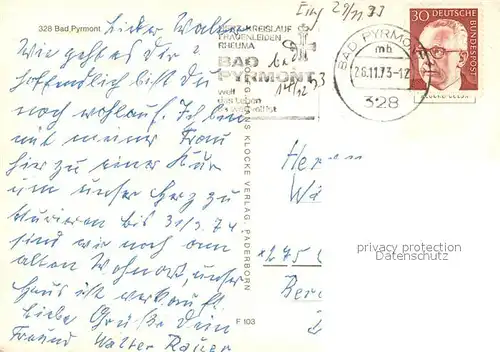 328 Bad Pyrmont
Eing 29/11 73
Lieber Walter
Wie geht es dir?
Hoffentlich bist du
noch wohlauf. Ich bin
mit meiner Frau
hier zu einer Kur
um unser Herz zu
kurieren bis 31/3. 74
sind wir noch am
alten Wohnort, unser
Haus ist verkauft
Liebe Grüße dein
Freund Walter Bauer
HERZ KREISLAUF
FRAUENLEIDEN
RHEUMA
BAD
PYRMONT
weil
das Leben
BAD PYRMONT
mb
26.11.73-12
328
30 DEUTSCHE
BUNDESPOST
KLOCKE VERLAG, PADERBORN
F 103
Herrn
Wa
275
Ber
privacy protection
Datenschutz